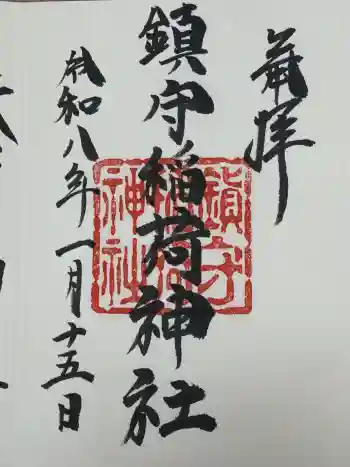 奉拝
鎮守稲荷神社
鎮守稲荷神社
令和八年一月十五日